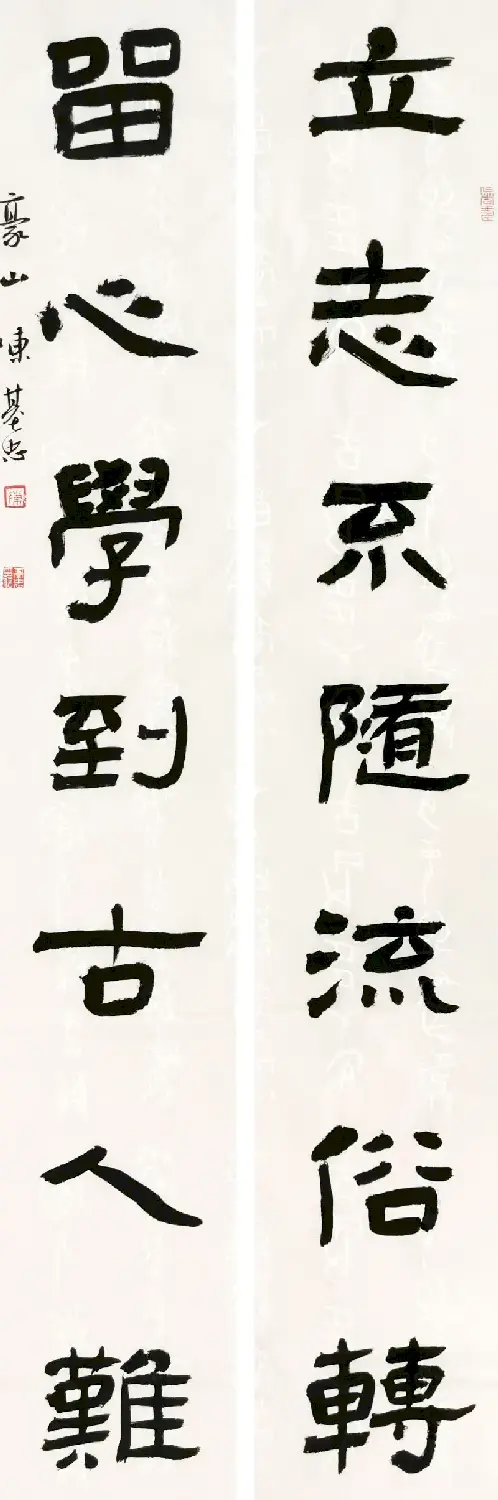 立志不隨流俗轉
留心學到古人難
豪山陳基忠